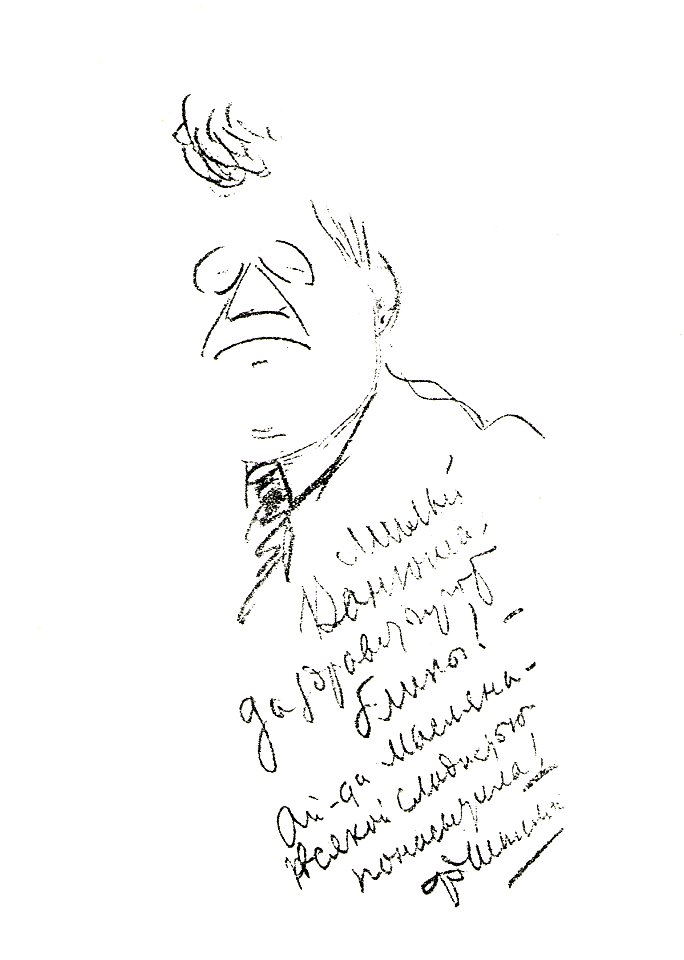 Милый
Ванюша,
да здравствуют
блины! –
Ай-да масляна –
всякой сладостью
понасытила!
Ф Шаляпин